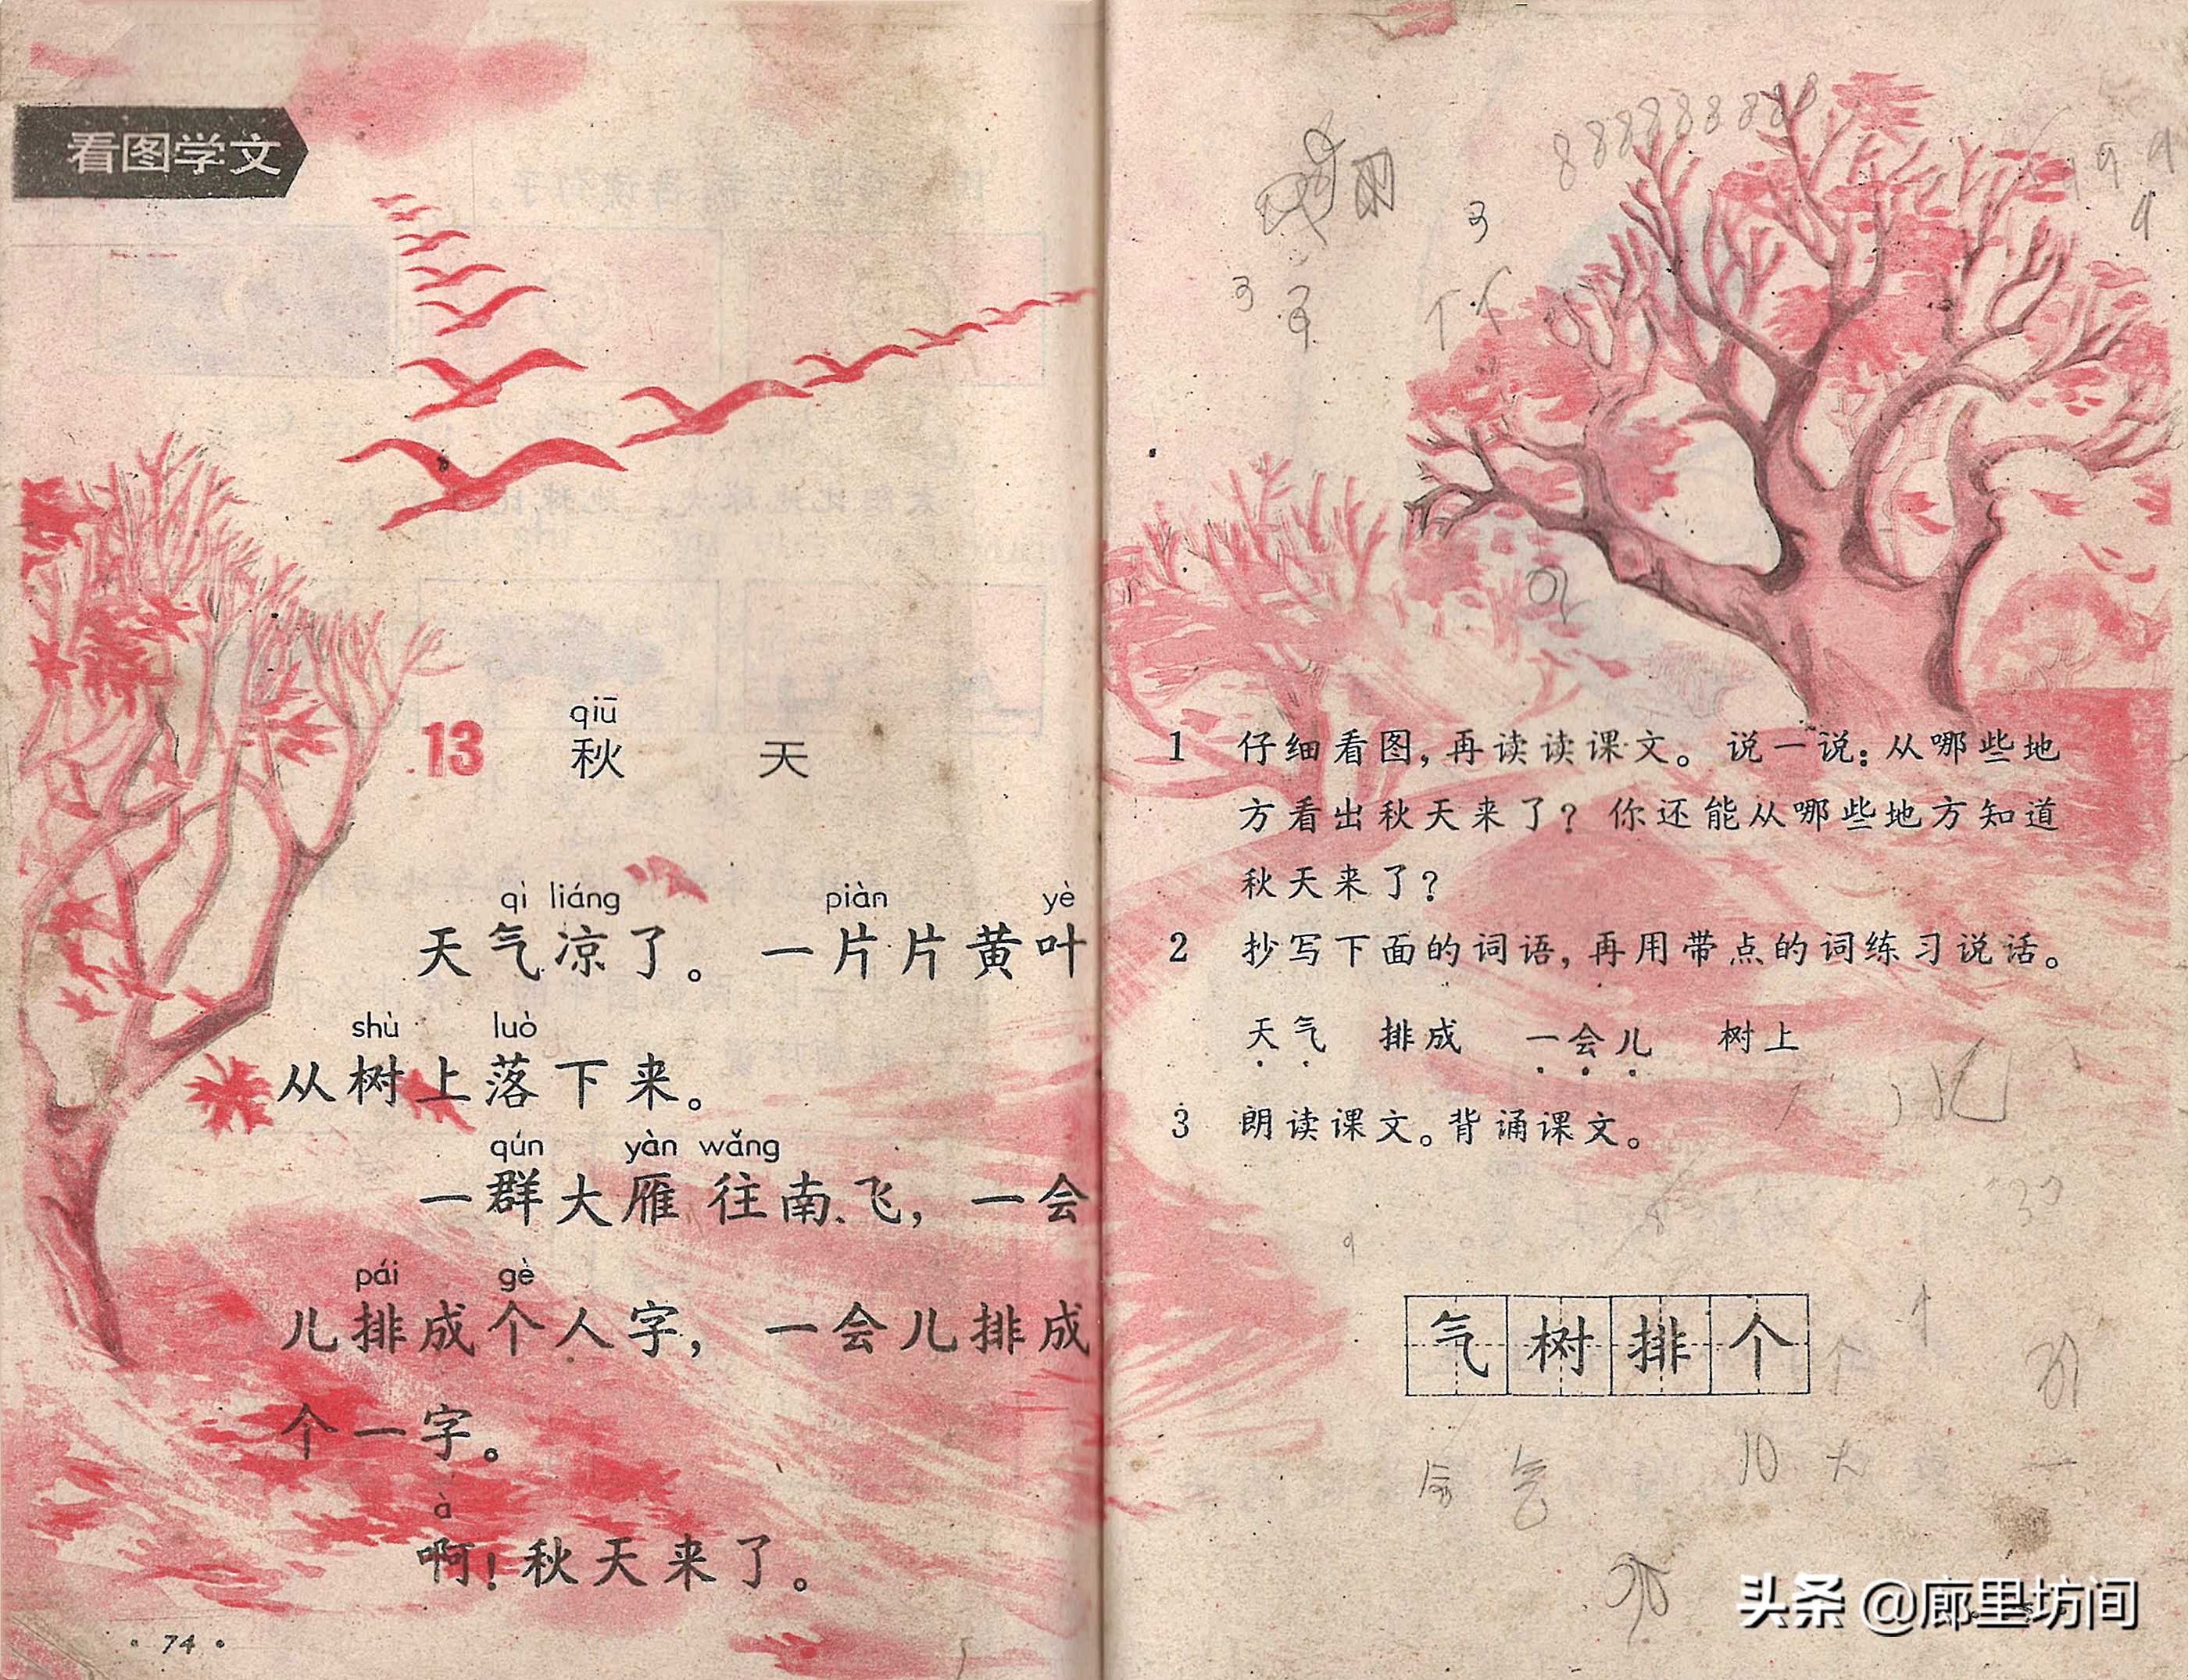 看图学文
qiū
13 秋 天
qì liáng piàn yè
天气凉了。一片片黄叶
shù luò
从树上落下来。
qún yàn wǎng
一群大雁往南飞，一会
pái gè
儿排成个人字，一会儿排成
个一字。
à
啊！秋天来了。
· 74 ·
1 仔细看图，再读读课文。说一说：从哪些地
方看出秋天来了？你还能从哪些地方知道
秋天来了？
2 抄写下面的词语，再用带点的词练习说话。
天气 排成 一会儿 树上
3 朗读课文。背诵课文。
气 树 排 个
头条 @廊里坊间